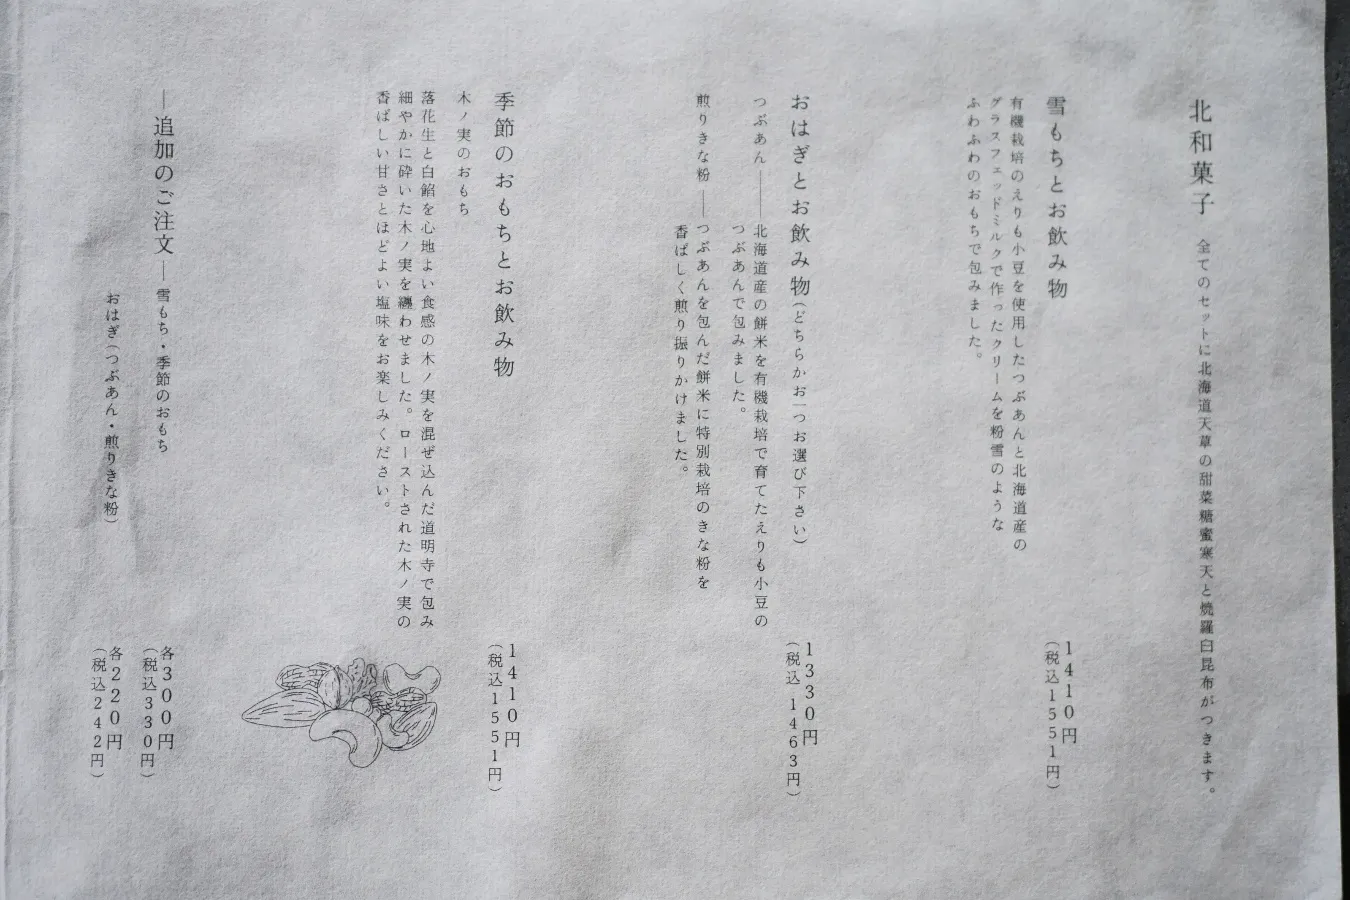 北和菓子　全てのセットに北海道天草の甜菜糖蜜寒天と焼羅臼昆布がつきます。
雪もちとお飲み物
1410円
(税込1551円)
有機栽培のえりも小豆を使用したつぶあんと北海道産の
グラスフェッドミルクで作ったクリームを粉雪のような
ふわふわのおもちで包みました。
おはぎとお飲み物(どちらかお一つお選び下さい)
1330円
(税込1463円)
つぶあん――北海道産の餅米を有機栽培で育てたえりも小豆の
つぶあんで包みました。
煎りきな粉――つぶあんを包んだ餅米に特別栽培のきな粉を
香ばしく煎り振りかけました。
季節のおもちとお飲み物
1410円
(税込1551円)
木ノ実のおもち
落花生と白餡を心地よい食感の木ノ実を混ぜ込んだ道明寺で包み
細やかに砕いた木ノ実を纏わせました。ローストされた木ノ実の
香ばしい甘さとほどよい塩味をお楽しみください。
―追加のご注文―雪もち・季節のおもち
各300円
(税込330円)
おはぎ(つぶあん・煎りきな粉)
各220円
(税込242円)